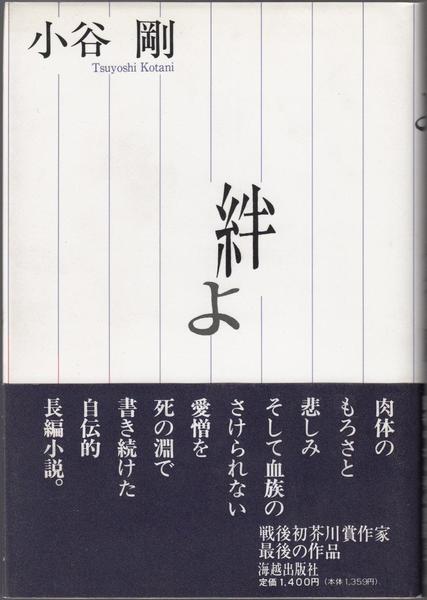 小谷 剛
Tsuyoshi Kotani
絆
よ
肉体の
もろさと
悲しみ
そして血族の
さけられない
愛憎を
死の淵で
書き続けた
自伝的
長編小説。
戦後初芥川賞作家
最後の作品
海越出版社
定価1,400円(本体1,359円)